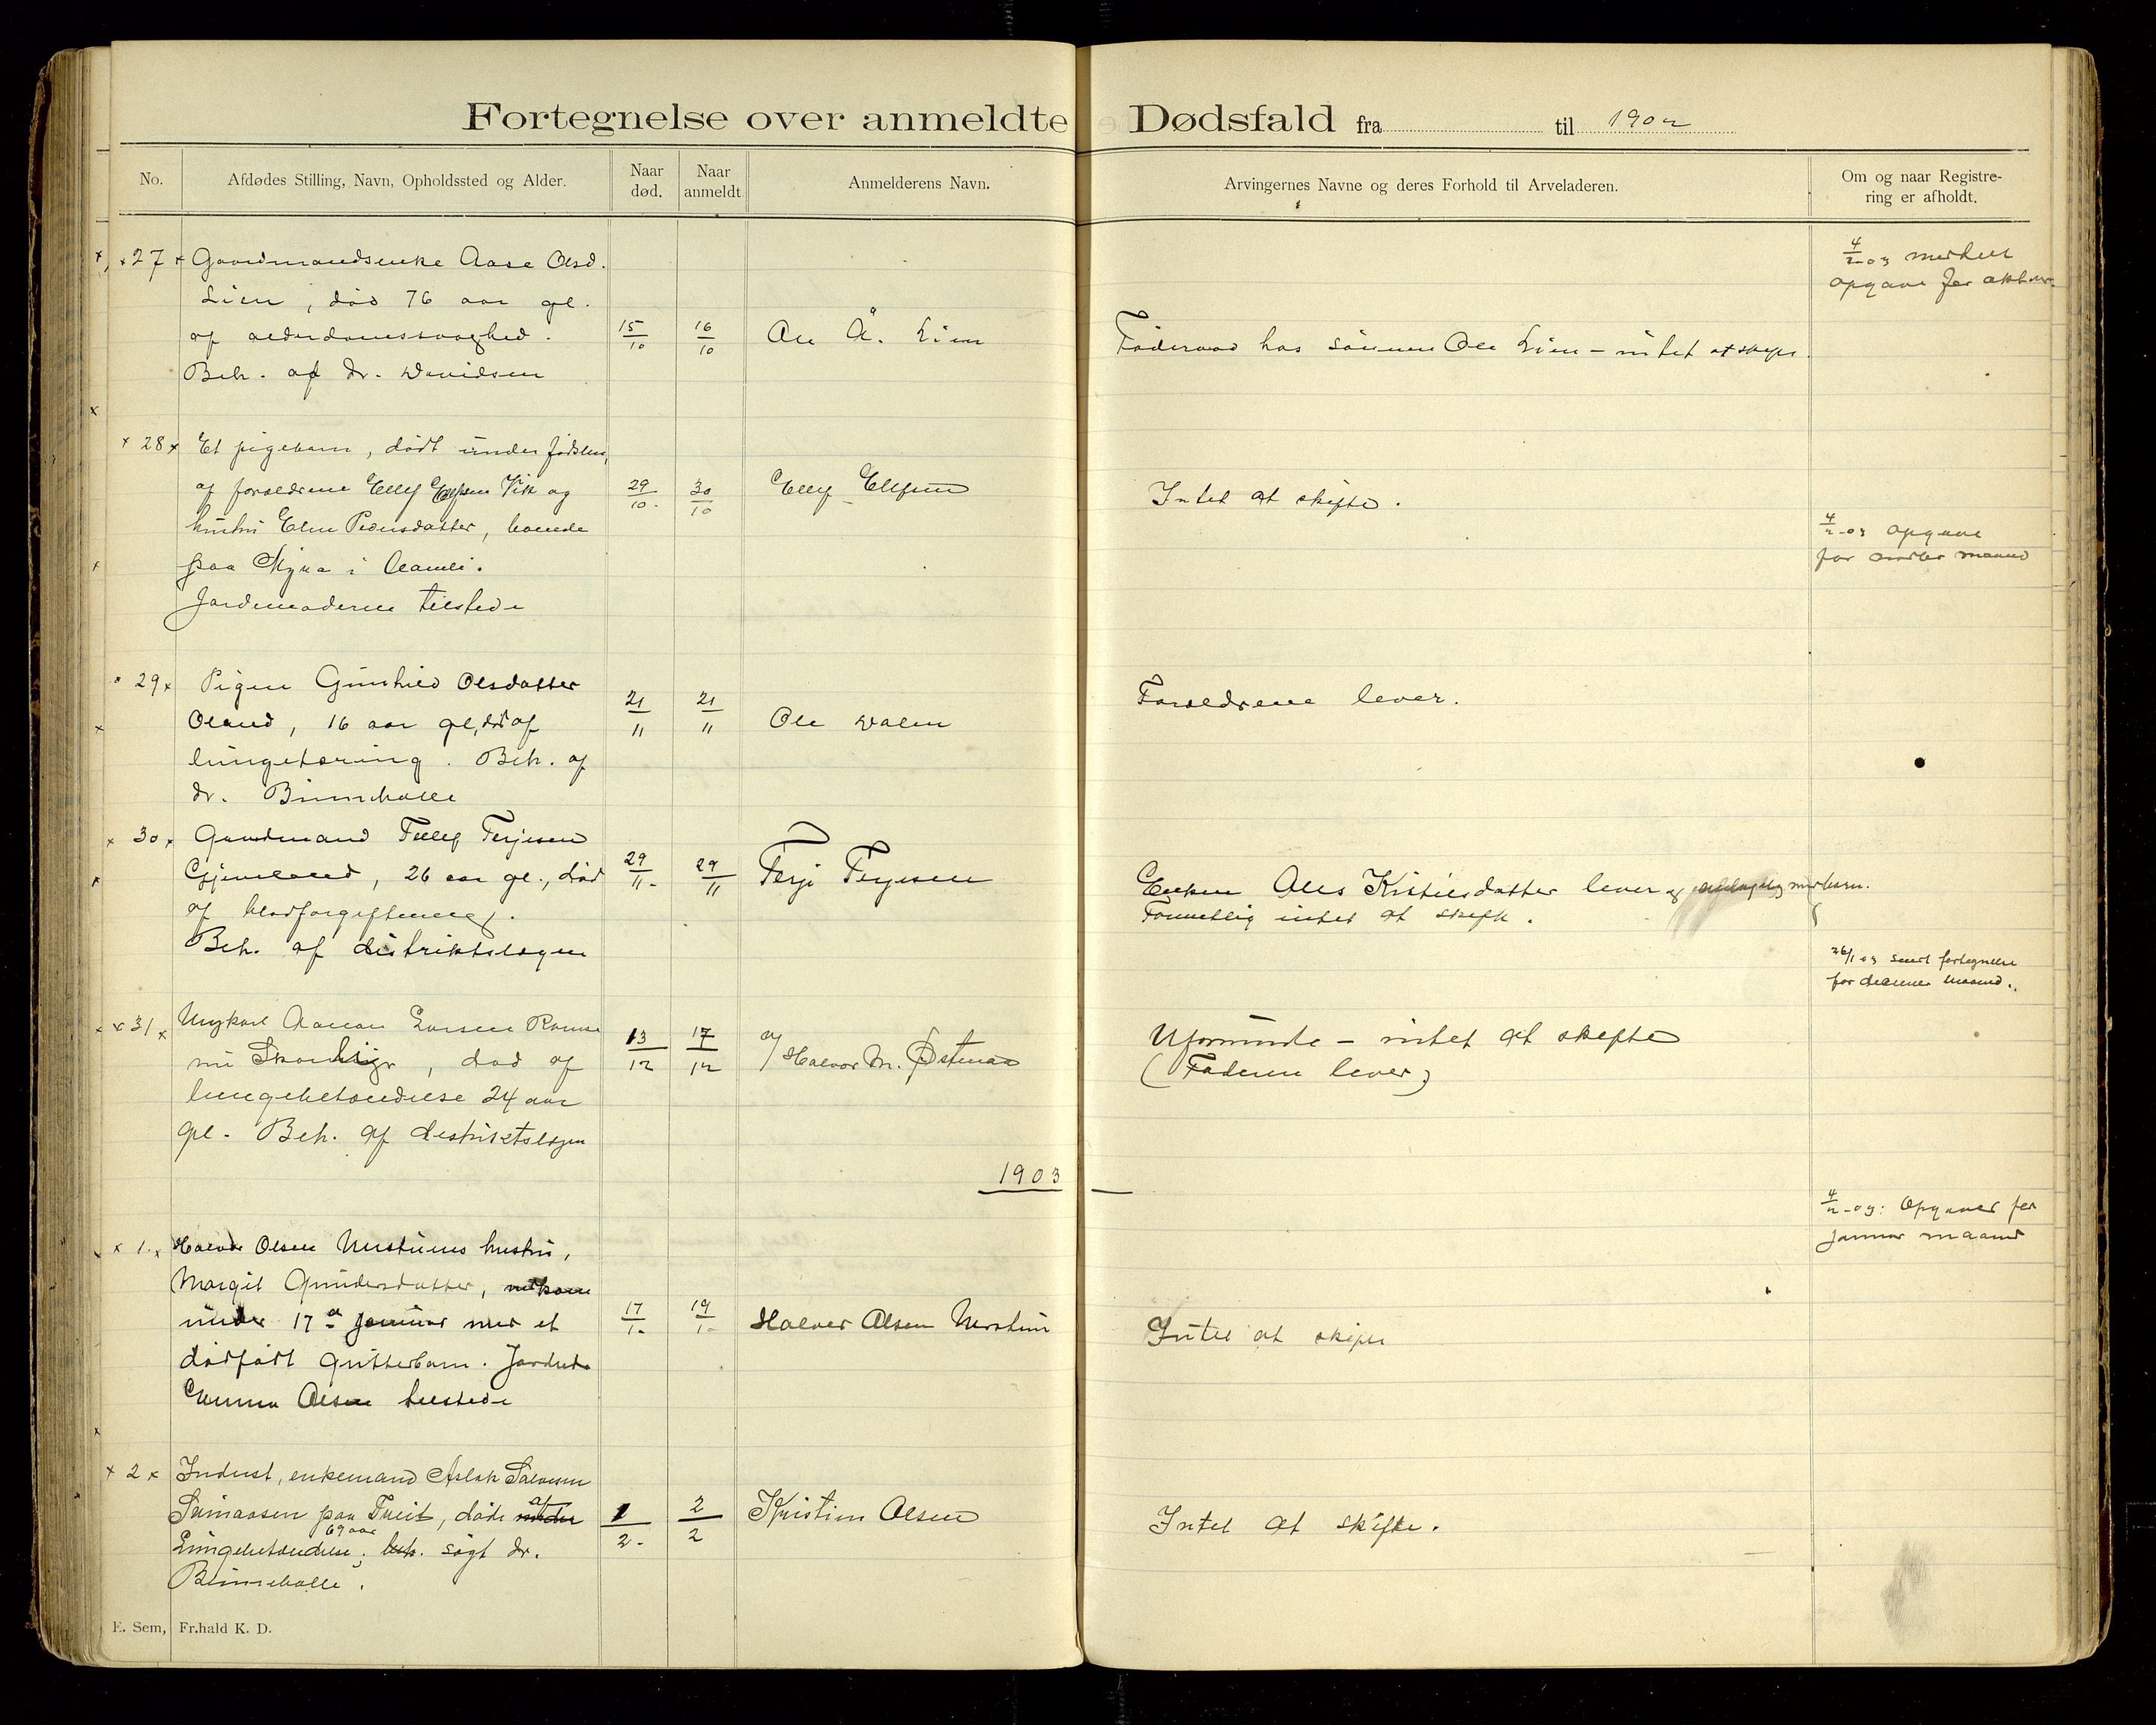 Fortegnelse over anmeldte Dødsfald fra til 1902
No.
Afdødes Stilling, Navn, Opholdssted og Alder.
Naar død.
Naar anmeldt
Anmelderens Navn.
Arvingernes Navne og deres Forhold til Arveladeren.
Om og naar Registre-
ring er afholdt.
27 Gaardmandsenke Aase Olsd.
Lien, död 76 aar gl.
af alderdomssvaghed.
Beh. af dr. Davidsen
15/10
16/10
Ole Å. Lien
Föderaad hos sönnen Ole Lien - intet at skifte
4/2-03
opgave for
28 Et pigebarn, dödt under födslen,
af forældrene Ellef Ellefsen Vik og
hustru Elen Pedersdatter, boende
paa i Aamli.
Jordemoderen tilstede
29/10.
30/10
Ellef Ellefsen
Intet at skifte.
4/2-03 opgave
for maaned
29 Pigen Gunhild Olsdatter
Oland, 16 aar gl, död af
lungetæring. Beh. af
dr. Binneballe
21/11
21/11
Ole Dalen
Forældrene lever.
30 Gaardmand Tellef Terjesen
Gjeveland, 26 aar gl., död
af blodforgiftning.
Beh. af distriktslægen
29/11.
29/11
Terje Terjesen
Enken Ales Kristiesdatter lever og barn.
Formentlig intet at skifte.
26/1 03 sendt fortegnelse
for denne maaned.
31 Ungkarl Aanon Larsen
, död af
lungebetændelse 24 aar
gl. Beh. af distriktslægen
13/12
17/12
Halvor M. Östenaa
Uformuende - intet at skifte
(Faderen lever)
1903
4/2-03: Opgaver for
Januar maaned
1. Halvor Olsen Nerstuens hustru,
Margit Gundersdatter, nedkom
under 17de januar med et
dödfödt gutterbarn. Jordm
Emma Olsen tilstede
17/1.
19/1.
Halvor Olsen Nerstuen
Intet at skifte
2 Inderst, enkemand Aslak Salvesen
Simaasen paa Tveit, döde af under
69 aar
Lungebetændelse; beh. sögt dr.
Binneballe.
1/2.
2/2
Kristian Olsen
Intet at skifte.
E. Sem, Fr.hald K. D.